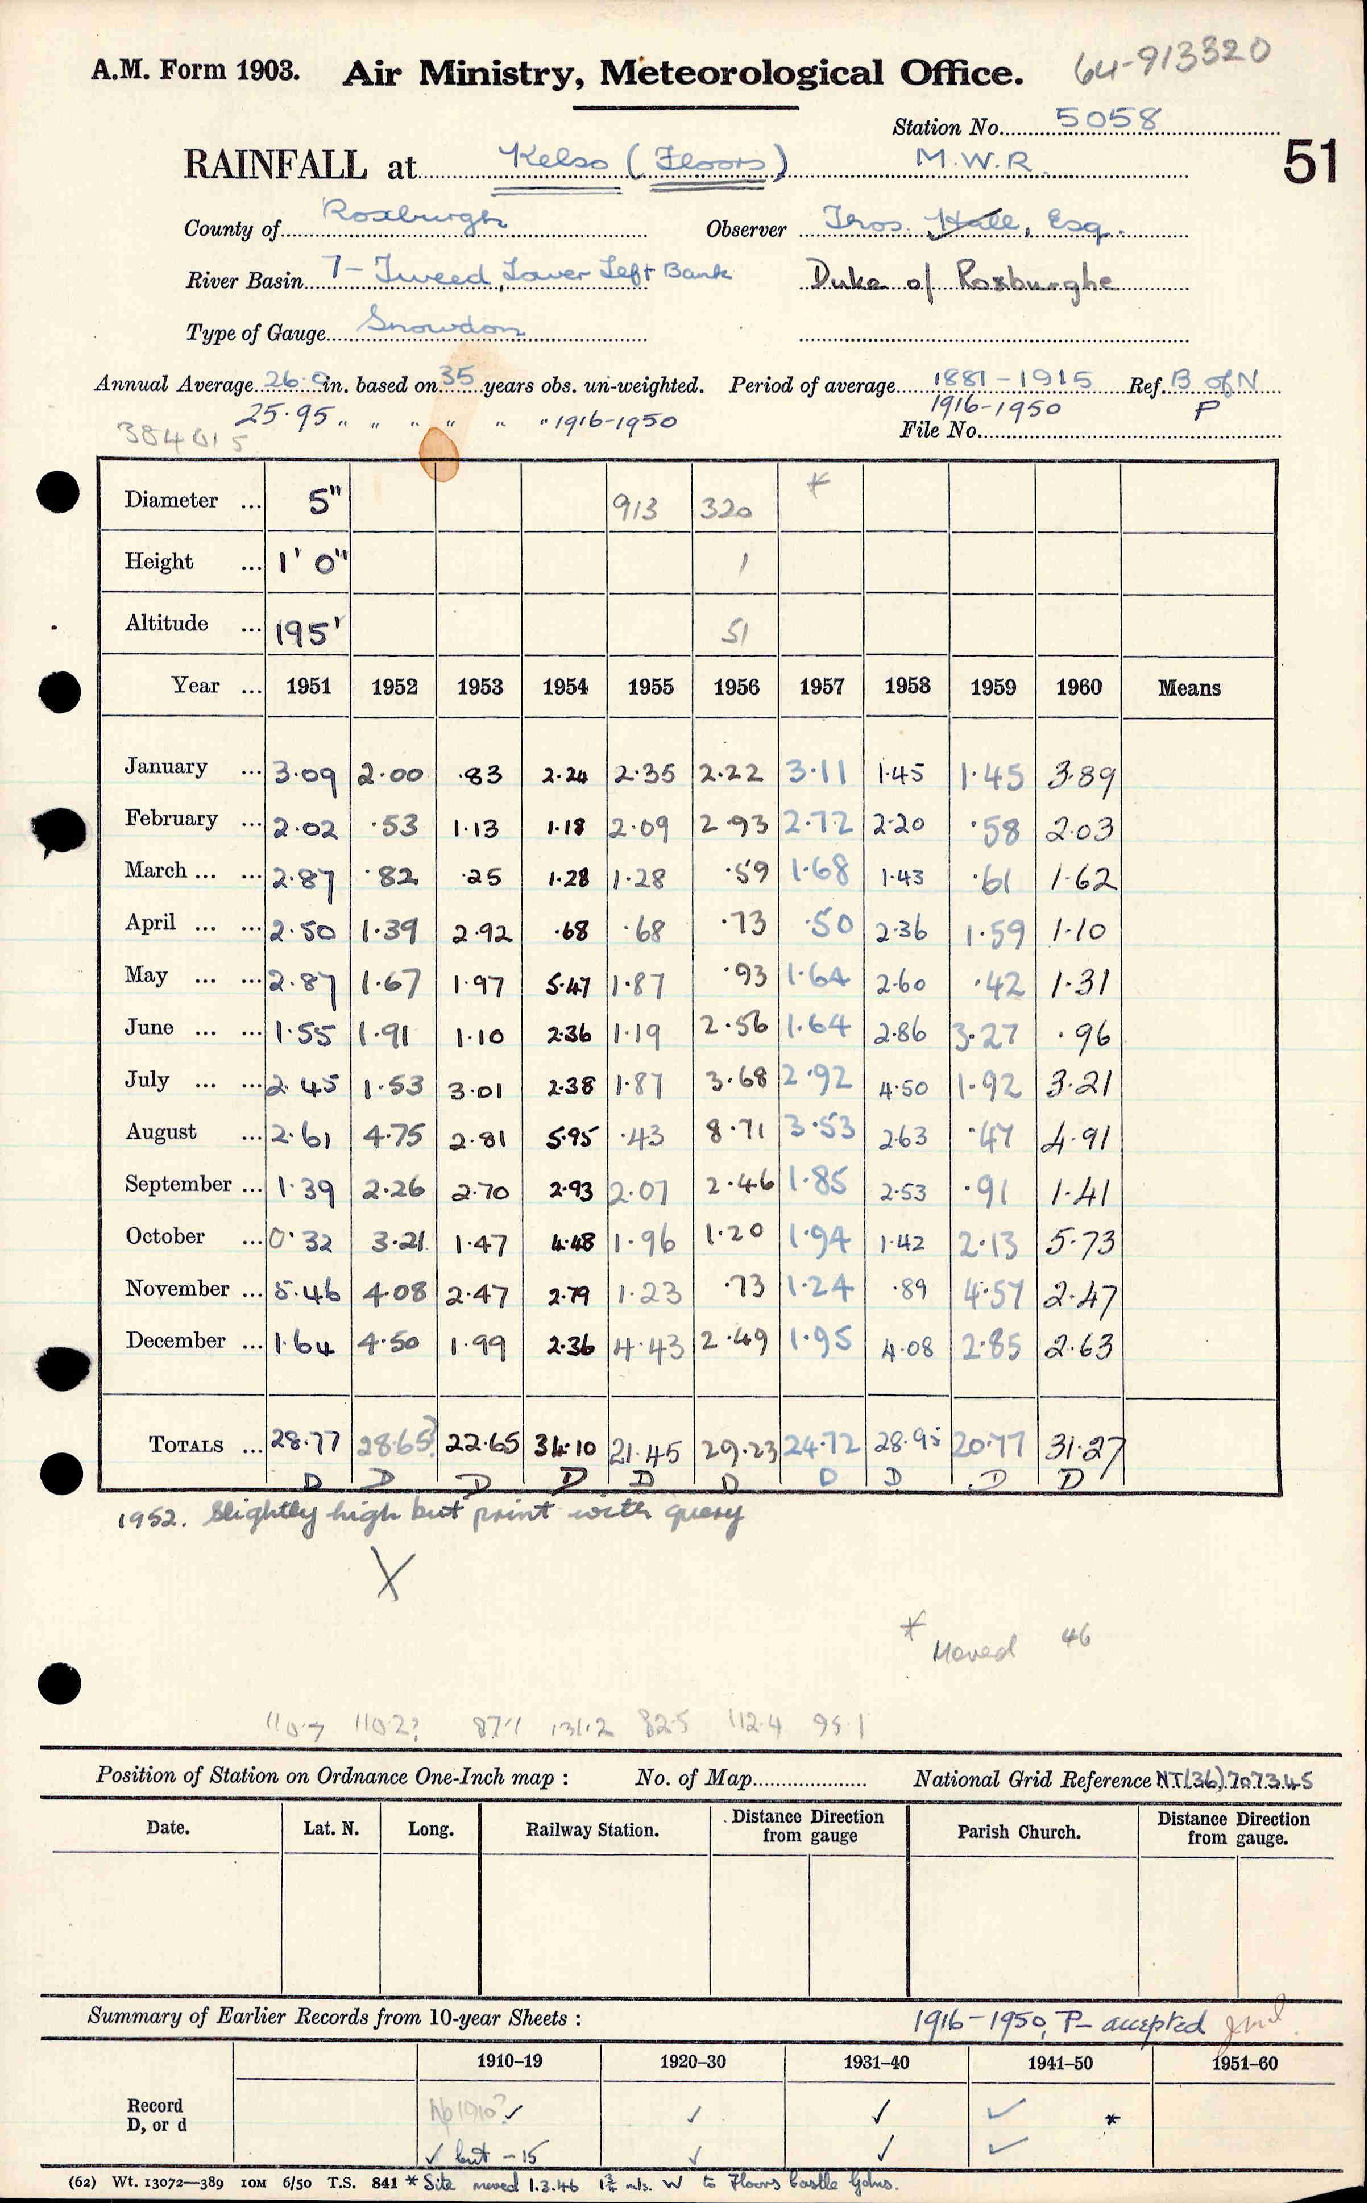 A.M. Form 1903. Air Ministry, Meteorological Office. 64-913320
Station No. 5058
RAINFALL at Kelso (Floors) M.W.R. 51
County of Roxburgh Observer Thos. Hall, Esq.
River Basin 7- Tweed, Lower Left Bank Duke of Roxburghe
Type of Gauge Snowdon
Annual Average 26.0 in. based on 35 years obs. un-weighted. Period of average 1881-1915 Ref. B of N
25.95 " " " " " " 1916-1950 1916-1950 P
384015 File No.
Diameter ... 5" 913 320 *
Height ... 1' 0" 1
Altitude ... 195' 51
Year ... 1951 1952 1953 1954 1955 1956 1957 1958 1959 1960 Means
January ... 3.09 2.00 .83 2.24 2.35 2.22 3.11 1.45 1.45 3.89
February ... 2.02 .53 1.13 1.18 2.09 2.93 2.72 2.20 .58 2.03
March ... ... 2.87 .82 .25 1.28 1.28 .59 1.68 1.43 .61 1.62
April ... ... 2.50 1.39 2.92 .68 .68 .73 .50 2.36 1.59 1.10
May ... ... 2.87 1.67 1.97 5.47 1.87 .93 1.64 2.60 .42 1.31
June ... ... 1.55 1.91 1.10 2.36 1.19 2.56 1.64 2.86 3.27 .96
July ... ... 2.45 1.53 3.01 2.38 1.87 3.68 2.92 4.50 1.92 3.21
August ... 2.61 4.75 2.81 5.95 .43 8.71 3.53 2.63 .47 4.91
September ... 1.39 2.26 2.70 2.93 2.07 2.46 1.85 2.53 .91 1.41
October ... 0.32 3.21 1.47 4.48 1.96 1.20 1.94 1.42 2.13 5.73
November ... 5.46 4.08 2.47 2.79 1.23 .73 1.24 .89 4.57 2.47
December ... 1.64 4.50 1.99 2.36 4.43 2.49 1.95 4.08 2.85 2.63
TOTALS ... 28.77 28.65? 22.65 34.10 21.45 29.23 24.72 28.95 20.77 31.27
D D D D D D D D D D
1952. Slightly high but print with query
X
* Moved 46
110.7 110.2? 87.1 131.2 82.5 112.4 95.1
Position of Station on Ordnance One-Inch map : No. of Map National Grid Reference NT(36)707345
Date. Lat. N. Long. Railway Station. Distance Direction from gauge Parish Church. Distance Direction from gauge.
Summary of Earlier Records from 10-year Sheets : 1916-1950, P- accepted
1910-19 1920-30 1931-40 1941-50 1951-60
Record No 1910? ✓ ✓ ✓ ✓ *
D, or d ✓ but -15 ✓ ✓ ✓
(62) Wt. 13072—389 10M 6/50 T.S. 841 * Site moved 1.3.46 1¾ mls. W to Floors Castle Gdns.